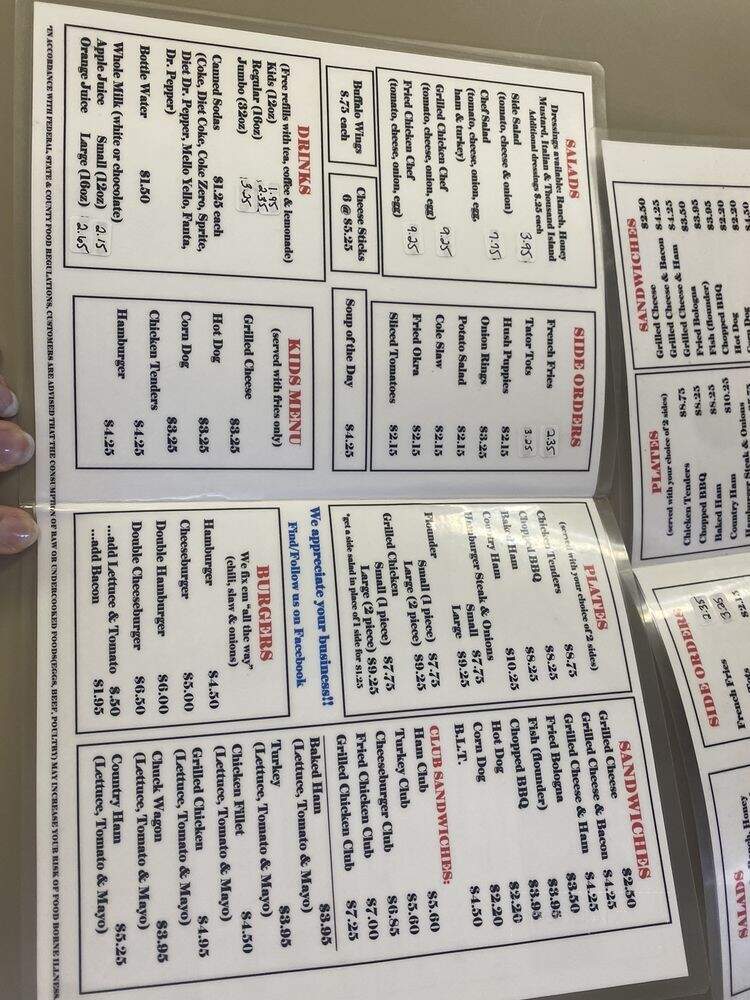 SALADS
Dressings available: Ranch, Honey
Mustard, Italian & Thousand Island
Additional dressings $.25 each
Side Salad 3.95
(tomato, cheese & onion)
Chef Salad 7.75
(tomato, cheese, onion, egg,
ham & turkey)
Grilled Chicken Chef 9.25
(tomato, cheese, onion, egg)
Fried Chicken Chef 9.25
(tomato, cheese, onion, egg)
Buffalo Wings
$.75 each
Cheese Sticks
6 @ $5.25
DRINKS
(Free refills with tea, coffee & lemonade)
Kids (12oz) 1.95
Regular (16oz) 2.35
Jumbo (32oz) 3.25
Canned Sodas $1.25 each
(Coke, Diet Coke, Coke Zero, Sprite,
Diet Dr. Pepper, Mello Yello, Fanta,
Dr. Pepper)
Bottle Water $1.50
Whole Milk (white or chocolate)
Apple Juice Small (12oz) 2.15
Orange Juice Large (16oz) 2.65
SIDE ORDERS
French Fries 2.35
Tator Tots 3.25
Hush Puppies $2.15
Onion Rings $3.25
Potato Salad $2.15
Cole Slaw $2.15
Fried Okra $2.15
Sliced Tomatoes $2.15
Soup of the Day $4.25
KIDS MENU
(served with fries only)
Grilled Cheese $3.25
Hot Dog $3.25
Corn Dog $3.25
Chicken Tenders $4.25
Hamburger $4.25
PLATES
(served with your choice of 2 sides)
Chicken Tenders $8.75
Chopped BBQ $8.25
Baked Ham $8.25
Country Ham $10.25
Hamburger Steak & Onions
Small $7.75
Large $9.25
Flounder
Small (1 piece) $7.75
Large (2 piece) $9.25
Grilled Chicken
Small (1 piece) $7.75
Large (2 piece) $9.25
*get a side salad in place of 1 side for $1.25
We appreciate your business!!
Find/Follow us on Facebook
BURGERS
We fix em "all the way"
(chili, slaw & onions)
Hamburger $4.50
Cheeseburger $5.00
Double Hamburger $6.00
Double Cheeseburger $6.50
...add Lettuce & Tomato $.50
...add Bacon $1.95
SANDWICHES
Grilled Cheese $2.50
Grilled Cheese & Bacon $4.25
Grilled Cheese & Ham $4.25
Fried Bologna $3.50
Fish (flounder) $3.95
Chopped BBQ $3.95
Hot Dog $2.20
Corn Dog $2.20
B.L.T. $4.50
CLUB SANDWICHES:
Ham Club $5.60
Turkey Club $5.60
Cheeseburger Club $6.85
Fried Chicken Club $7.00
Grilled Chicken Club $7.25
Baked Ham $3.95
(Lettuce, Tomato & Mayo)
Turkey $3.95
(Lettuce, Tomato & Mayo)
Chicken Fillet $4.50
(Lettuce, Tomato & Mayo)
Grilled Chicken $4.95
(Lettuce, Tomato & Mayo)
Chuck Wagon $3.95
(Lettuce, Tomato & Mayo)
Country Ham $5.25
(Lettuce, Tomato & Mayo)
*IN ACCORDANCE WITH FEDERAL, STATE & COUNTY FOOD REGULATIONS, CUSTOMERS ARE ADVISED THAT THE CONSUMPTION OF RAW OR UNDERCOOKED FOODS(EGGS, BEEF, POULTRY) MAY INCREASE YOUR RISK OF FOOD BORNE ILLNESS.
SANDWICHES
Grilled Cheese $2.50
Grilled Cheese & Bacon $4.25
Grilled Cheese & Ham $4.25
Fried Bologna $3.50
Fish (flounder) $3.95
Chopped BBQ $3.95
Hot Dog $2.20
PLATES
(served with your choice of 2 sides)
Chicken Tenders $8.75
Chopped BBQ $8.25
Baked Ham $8.25
Country Ham $10.25
SIDE ORDERS
French Fries 2.35
3.25
$2.15
SALADS